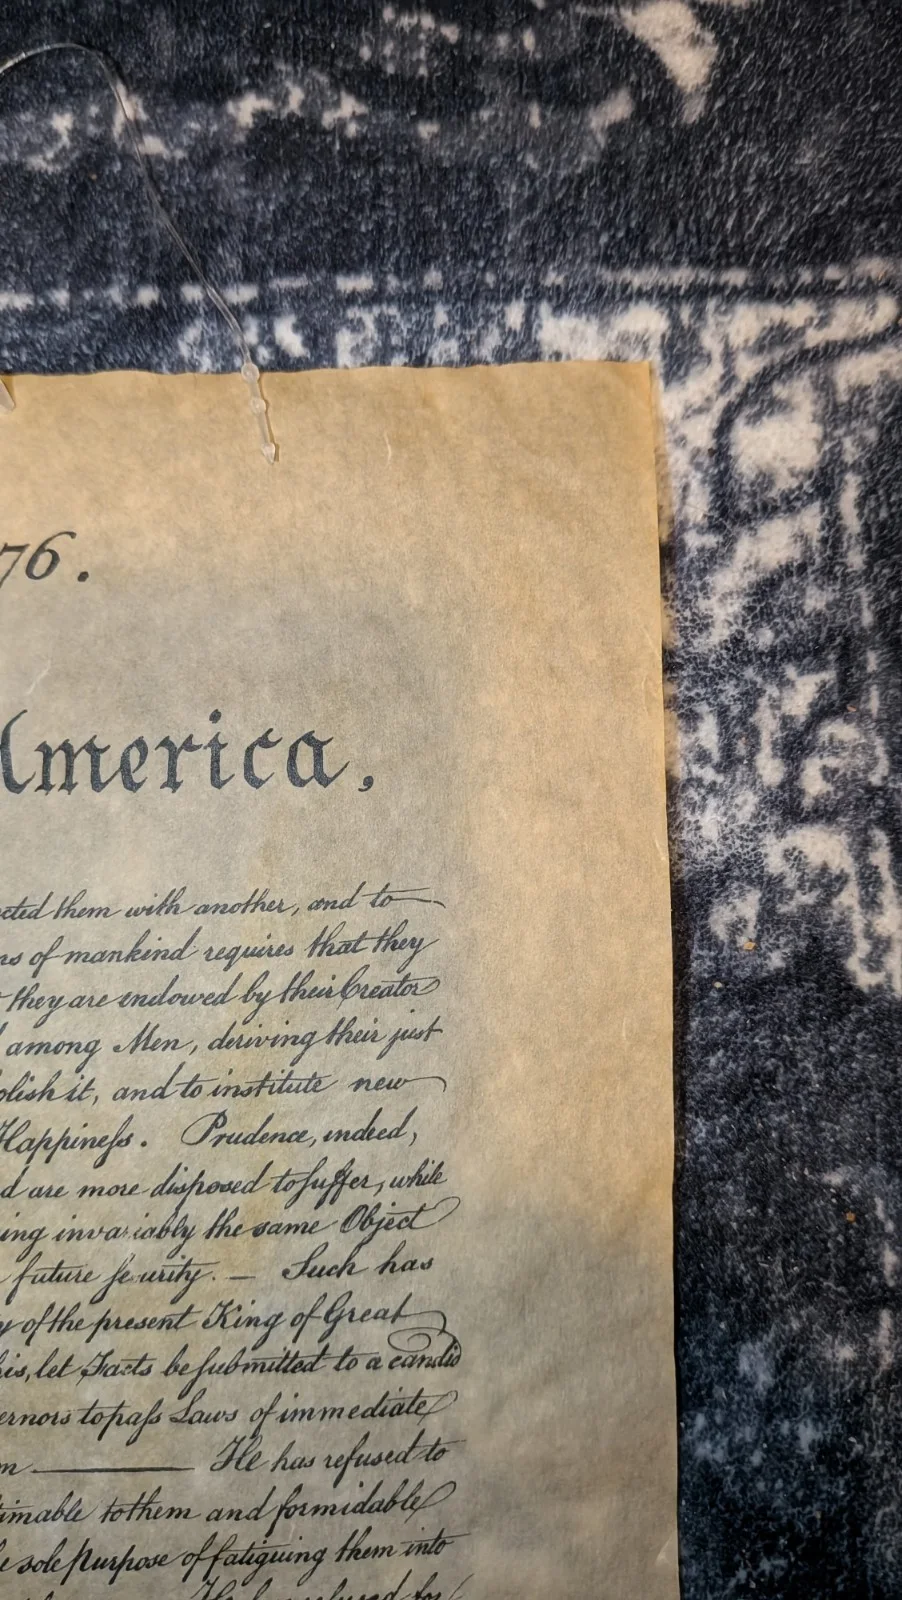 76.
America,
cted them with another, and to
ns of mankind requires that they
they are endowed by their Creator
among Men, deriving their just
olish it, and to institute new
Happineſs. Prudence, indeed,
d are more disposed to suffer, while
ing invariably the same Object
future security. — Such has
y of the present King of Great
his, let Facts be submitted to a candid
ernors to paſs Laws of immediate
n ——— He has refused to
timable to them and formidable
e sole Purpose of fatiguing them into
He has refused for